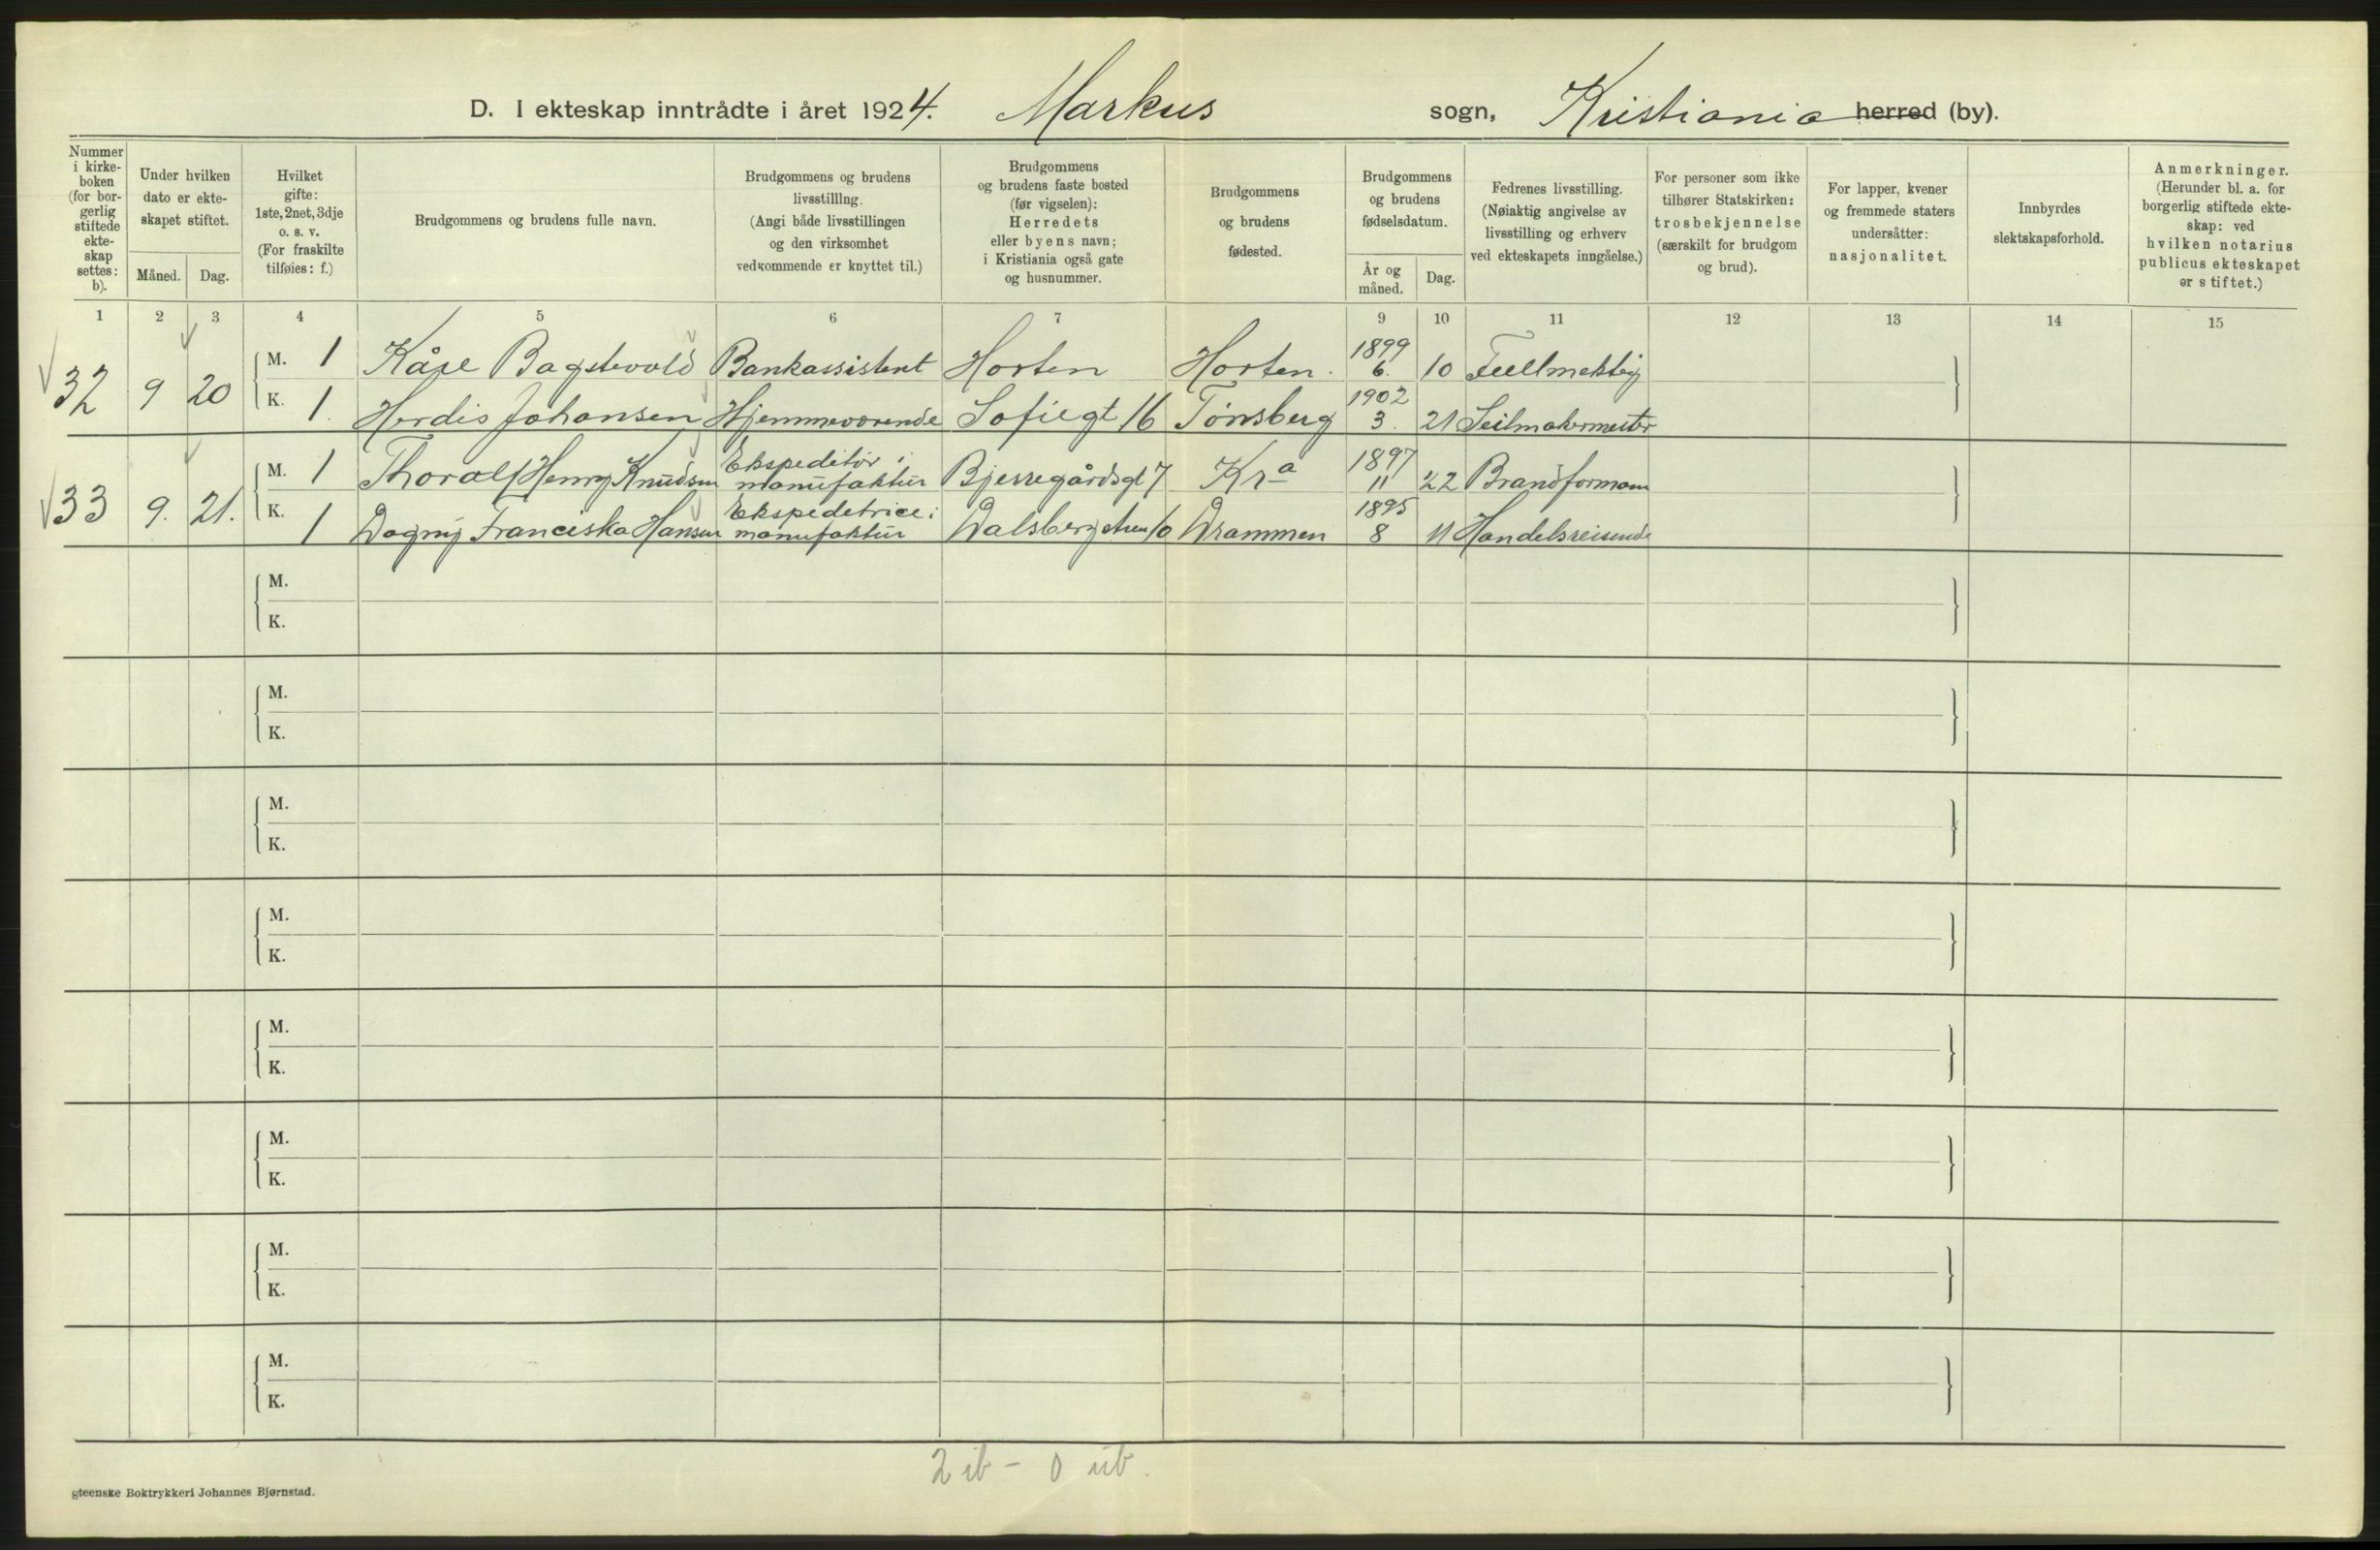 D. I ekteskap inntrådte i året 1924. Markus sogn, Kristiania herred (by).
Nummer i kirke-boken (for bor-gerlig stiftede ekte-skap settes: b).
Under hvilken dato er ekte-skapet stiftet.
Måned. Dag.
Hvilket gifte: 1ste, 2net, 3dje o. s. v. (For fraskilte tilføies: f.)
Brudgommens og brudens fulle navn.
Brudgommens og brudens livsstilling. (Angi både livsstillingen og den virksomhet vedkommende er knyttet til.)
Brudgommens og brudens faste bosted (før vigselen): Herredets eller byens navn; i Kristiania også gate og husnummer.
Brudgommens og brudens fødested.
Brudgommens og brudens fødselsdatum.
År og måned. Dag.
Fedrenes livsstilling. (Nøiaktig angivelse av livsstilling og erhverv ved ekteskapets inngåelse.)
For personer som ikke tilhører Statskirken: trosbekjennelse (særskilt for brudgom og brud).
For lapper, kvener og fremmede staters undersåtter: nasjonalitet.
Innbyrdes slektskapsforhold.
Anmerkninger. (Herunder bl. a. for borgerlig stiftede ekte-skap: ved hvilken notarius publicus ekteskapet er stiftet.)
1 2 3 4 5 6 7 9 10 11 12 13 14 15
32 9 20
M. 1 Kåre Bagstevold Bankassistent Horten Horten. 1899 6. 10 Fullmektig
K. 1. Herdis Johansen Hjemmeværende Sofiegt 16 Tønsberg 1902 3. 21 Seilmakermester
33 9. 21.
M. 1 Thoralf Henry Knudsen Ekspeditør i manufaktur Bjerregårdsgt 7 Kra 1897 11 22 Brandformann
K. 1 Dagny Franciska Hansen Ekspeditrice i manufaktur Dalsbergstien 10 Drammen 1895 8 11 Handelsreisende
M.
K.
M.
K.
M.
K.
M.
K.
M.
K.
M.
K.
M.
K.
M.
K.
2 ib - 0 ub.
gteenske Boktrykkeri Johannes Bjørnstad.